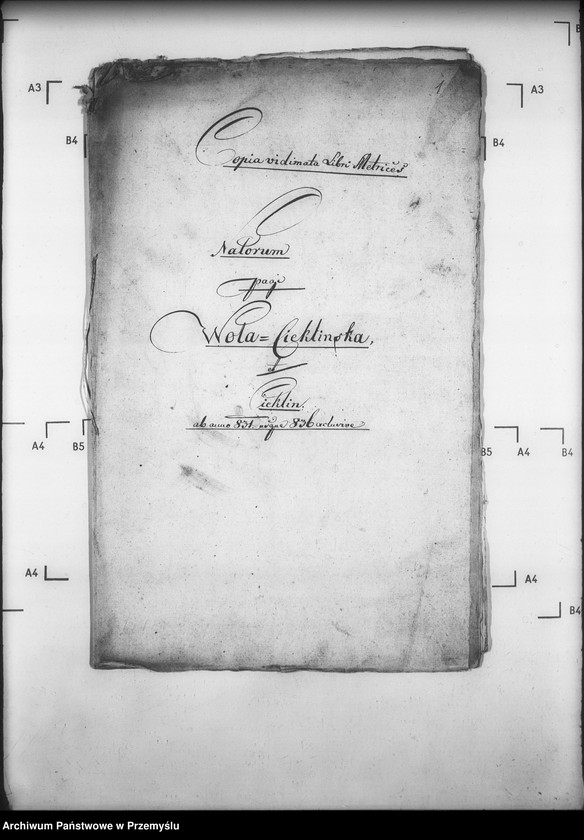 1
Copia vidimata Libri Metrices
Natorum
pagi
Wola=Cieklinska,
et
Cieklin.
ab anno 831. usque 836 exclusive
A3
A3
B4
B4
A4
B5
B5
A4
B4
A4
A4
B4
Archiwum Państwowe w Przemyślu